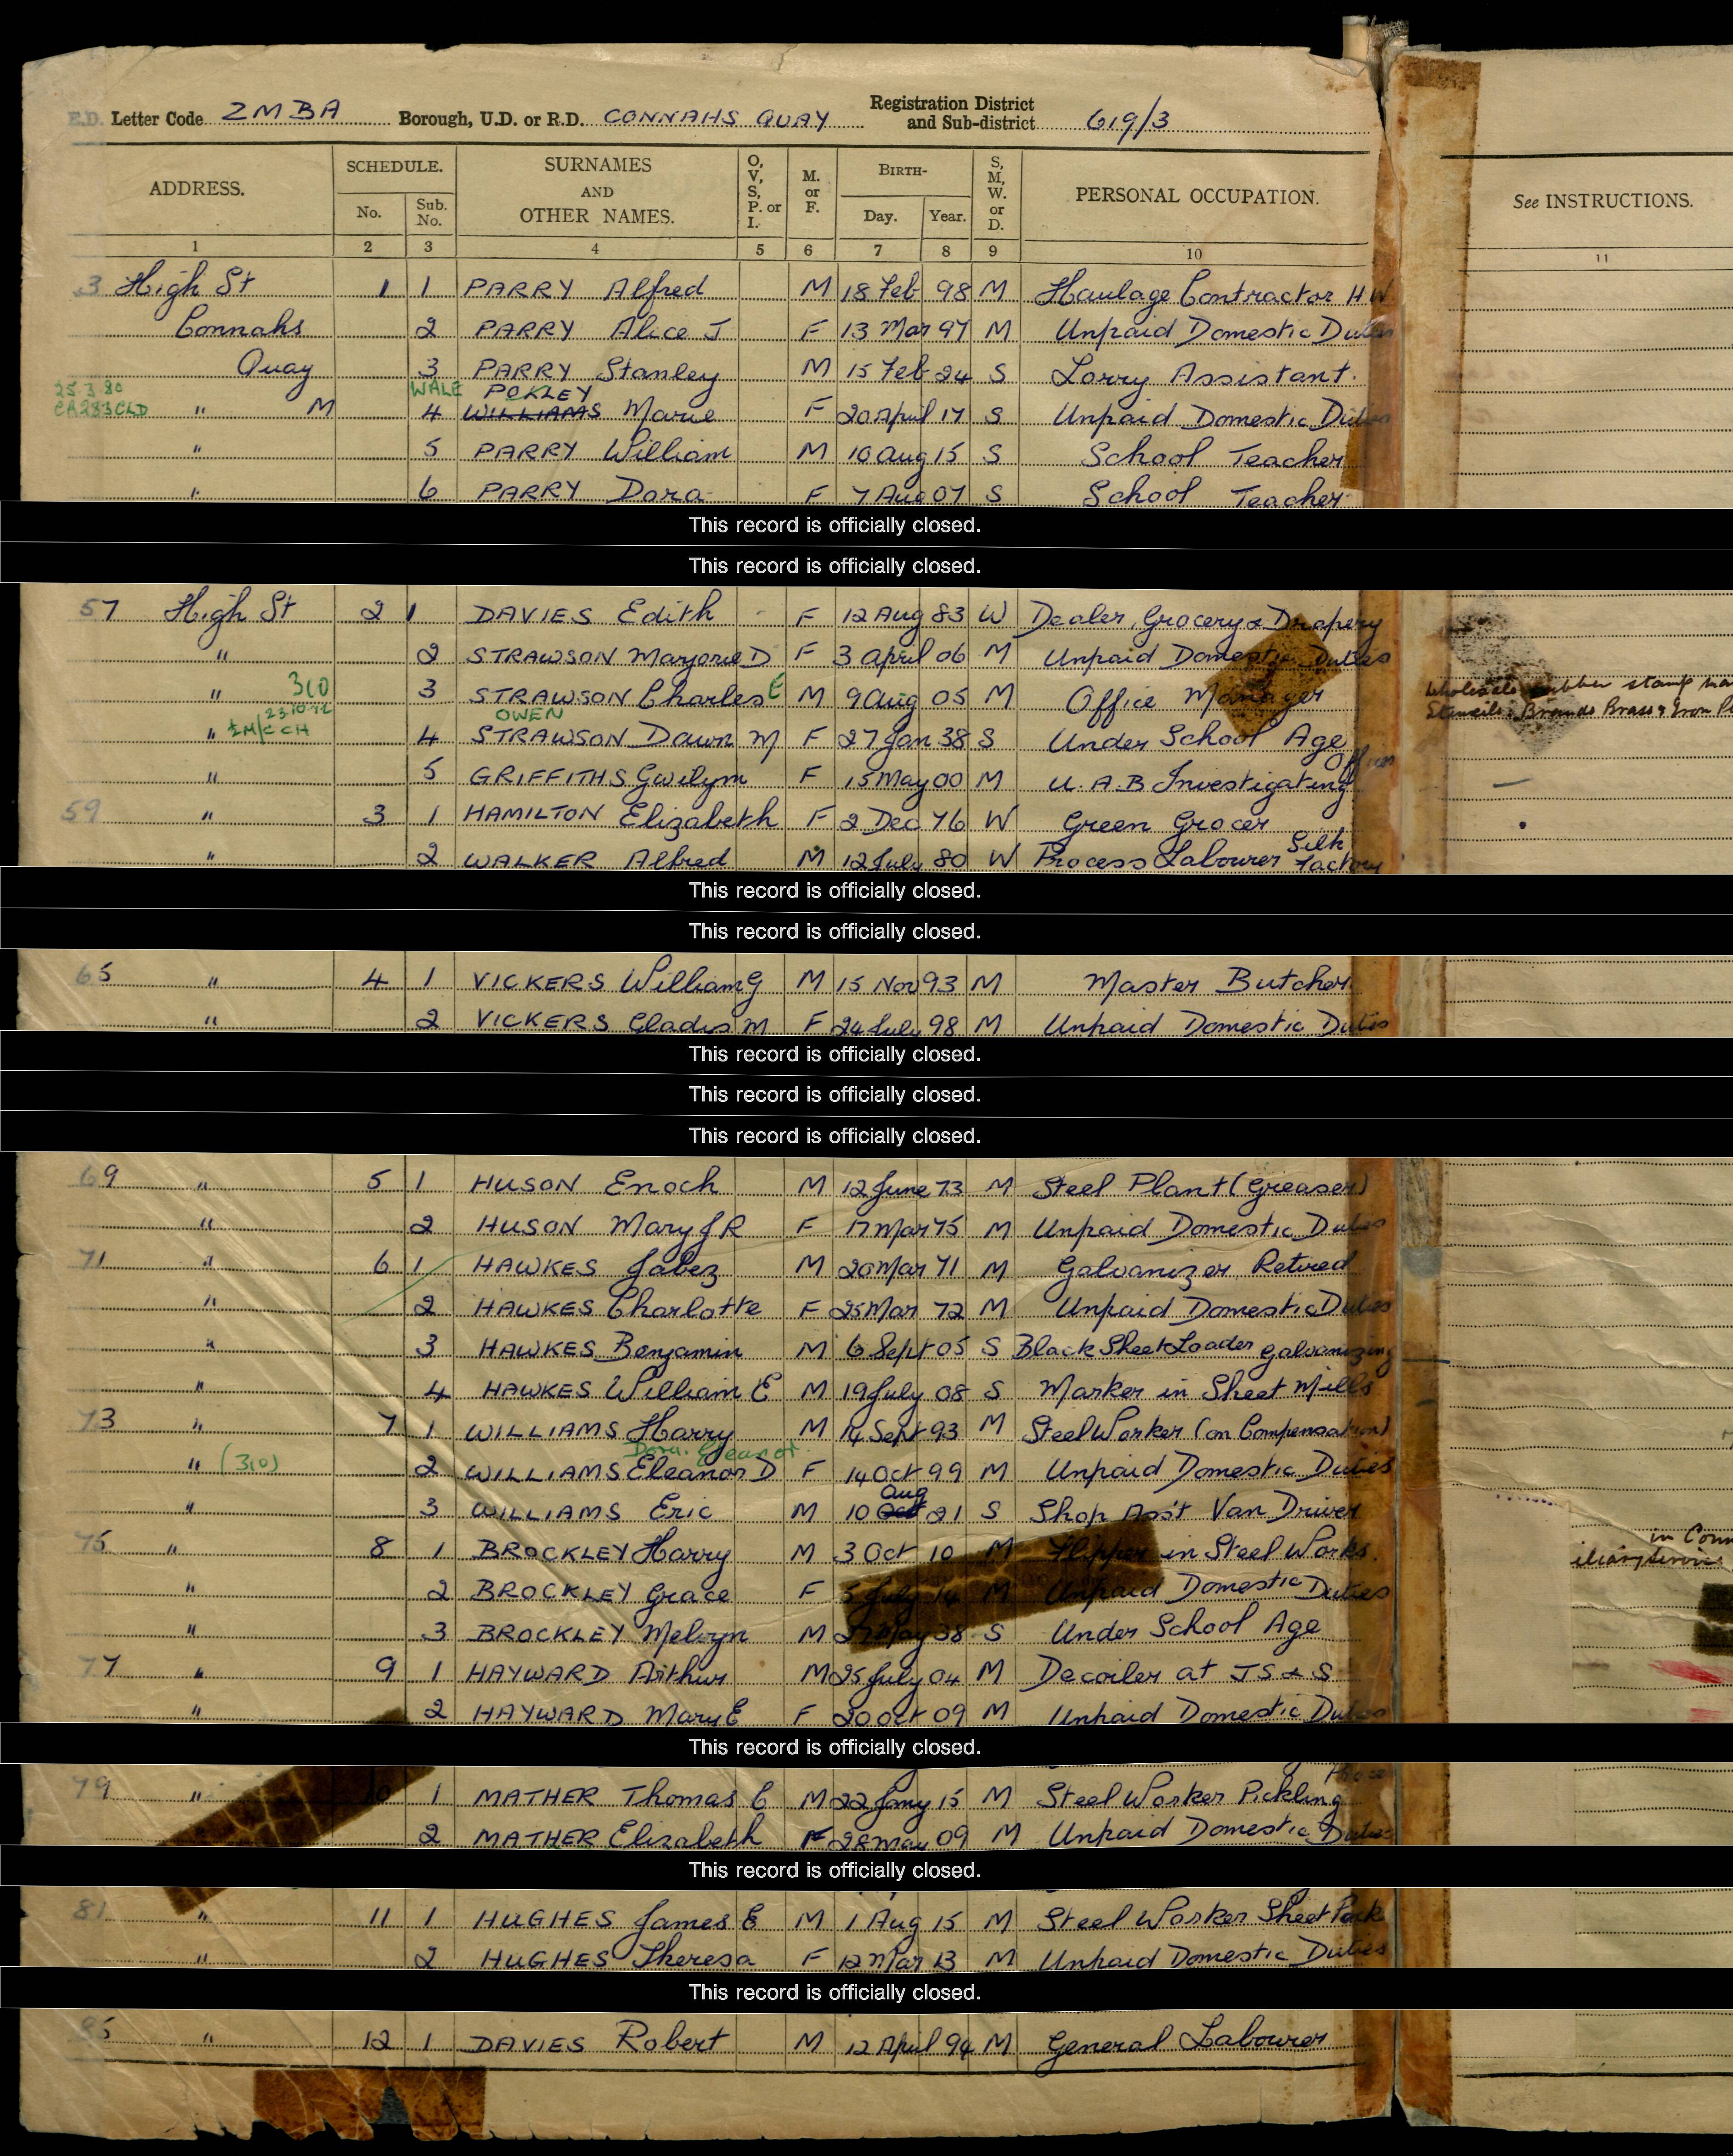 E.D. Letter Code ZMBA Borough, U.D. or R.D. CONNAHS QUAY Registration District and Sub-district 619/3
ADDRESS. SCHEDULE. No. Sub. No. SURNAMES AND OTHER NAMES. O, V, S, P. or I. M. or F. BIRTH- Day. Year. S, M, W. or D. PERSONAL OCCUPATION. See INSTRUCTIONS.
1 2 3 4 5 6 7 8 9 10 11
3 High St 1 1 PARRY Alfred M 18 Feb 98 M Haulage Contractor H W
Connahs 2 PARRY Alice J F 13 Mar 97 M Unpaid Domestic Duties
Quay 3 PARRY Stanley M 15 Feb 24 S Lorry Assistant.
25.3.80 WALE POKLEY
CA283CLD " M 4 WILLIAMS Marie F 20 April 17 S Unpaid Domestic Duties
" 5 PARRY William M 10 Aug 15 S School Teacher
" 6 PARRY Dora F 7 Aug 07 S School Teacher
This record is officially closed.
This record is officially closed.
57 High St 2 1 DAVIES Edith - F 12 Aug 83 W Dealer, Grocery & Drapery
" 2 STRAWSON Marjorie D F 3 April 06 M Unpaid Domestic Duties
" 310 3 STRAWSON Charles E M 9 Aug 05 M Office Manager Wholesale rubber stamp
Stencils Brands Brass & Iron
23.10.72 OWEN
" 4 STRAWSON Dawn M F 27 Jan 38 S Under School Age
" 5 GRIFFITHS Gwilym F 15 May 00 M U.A.B Investigating Officer
59 " 3 1 HAMILTON Elizabeth F 2 Dec 76 W Green Grocer
" 2 WALKER Alfred M 12 July 80 W Process Labourer Silk Factory
This record is officially closed.
This record is officially closed.
65 " 4 1 VICKERS William G M 15 Nov 93 M Master Butcher
" 2 VICKERS Gladis M F 24 July 98 M Unpaid Domestic Duties
This record is officially closed.
This record is officially closed.
This record is officially closed.
69 " 5 1 HUSON Enoch M 12 June 73 M Steel Plant (Greaser)
" 2 HUSON Mary J R F 17 Mar 75 M Unpaid Domestic Duties
71 " 6 1 HAWKES Jabez M 20 Mar 71 M Galvanizer Retired
" 2 HAWKES Charlotte F 25 Mar 72 M Unpaid Domestic Duties
" 3 HAWKES Benjamin M 6 Sept 05 S Black Sheet Loader galvanizing
" 4 HAWKES William E M 19 July 08 S Marker in Sheet Mills
73 " 7 1 WILLIAMS Harry M 14 Sept 93 M Steel Worker (on Compensation)
Dora. Eleanor.
" (310) 2 WILLIAMS Eleanor D F 14 Oct 99 M Unpaid Domestic Duties
Aug
" 3 WILLIAMS Eric M 10 Oct 21 S Shop Ass't Van Driver
75 " 8 1 BROCKLEY Harry M 3 Oct 10 M Flipper in Steel Works.
" 2 BROCKLEY Grace F 5 July 14 M Unpaid Domestic Duties
" 3 BROCKLEY Melvyn M 27 May 38 S Under School Age
77 " 9 1 HAYWARD Arthur M 25 July 04 M Decoiler at J S & S
" 2 HAYWARD Mary E F 20 Oct 09 M Unpaid Domestic Duties
This record is officially closed.
79 " 10 1 MATHER Thomas E M 22 Jany 15 M Steel Worker Pickling
2 MATHER Elizabeth F 28 May 09 M Unpaid Domestic Duties
This record is officially closed.
81 " 11 1 HUGHES James E M 1 Aug 15 M Steel Worker Sheet Pack
" 2 HUGHES Theresa F 12 Mar 13 M Unpaid Domestic Duties
This record is officially closed.
85 " 12 1 DAVIES Robert M 12 April 94 M General Labourer